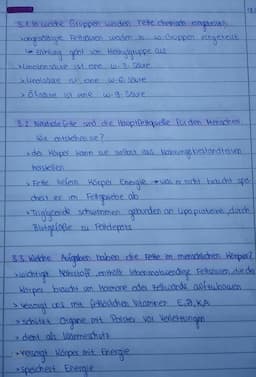 3.1 In welche Gruppen werden Fette chemisch eingeteilt?
> ungesättigte Fettsäuren werden in ω Gruppen eingeteilt
↳ Zählung geht von Methylgruppe aus
> Linolensäure ist eine ω-3 Säure
> Linolsäure ist eine ω-6 Säure
> Ölsäure ist eine ω-9 Säure
3.2 Neutralfette sind die Hauptfettquelle für den Menschen.
Wie entstehen sie?
> der Körper kann sie selbst aus Nahrungsbestandteilen
herstellen
> Fette liefern Körper Energie → was er nicht braucht spei-
chert er im Fettgewebe ab
> Triglyceride schwimmen gebunden an Lipoproteine durch
Blutgefäße zu Fettdepots
3.3 Welche Aufgaben haben die Fette im menschlichen Körper?
> wichtiger Nährstoff, enthält lebensnotwendige Fettsäuren, die der
Körper braucht um Hormone oder Zellwände aufzubauen
> versorgt uns mit fettlöslichen Vitaminen E,D,K,A
> schützt Organe mit Polster vor Verletzungen
> dient als Wärmeschutz
> versorgt Körper mit Energie
> speichert Energie